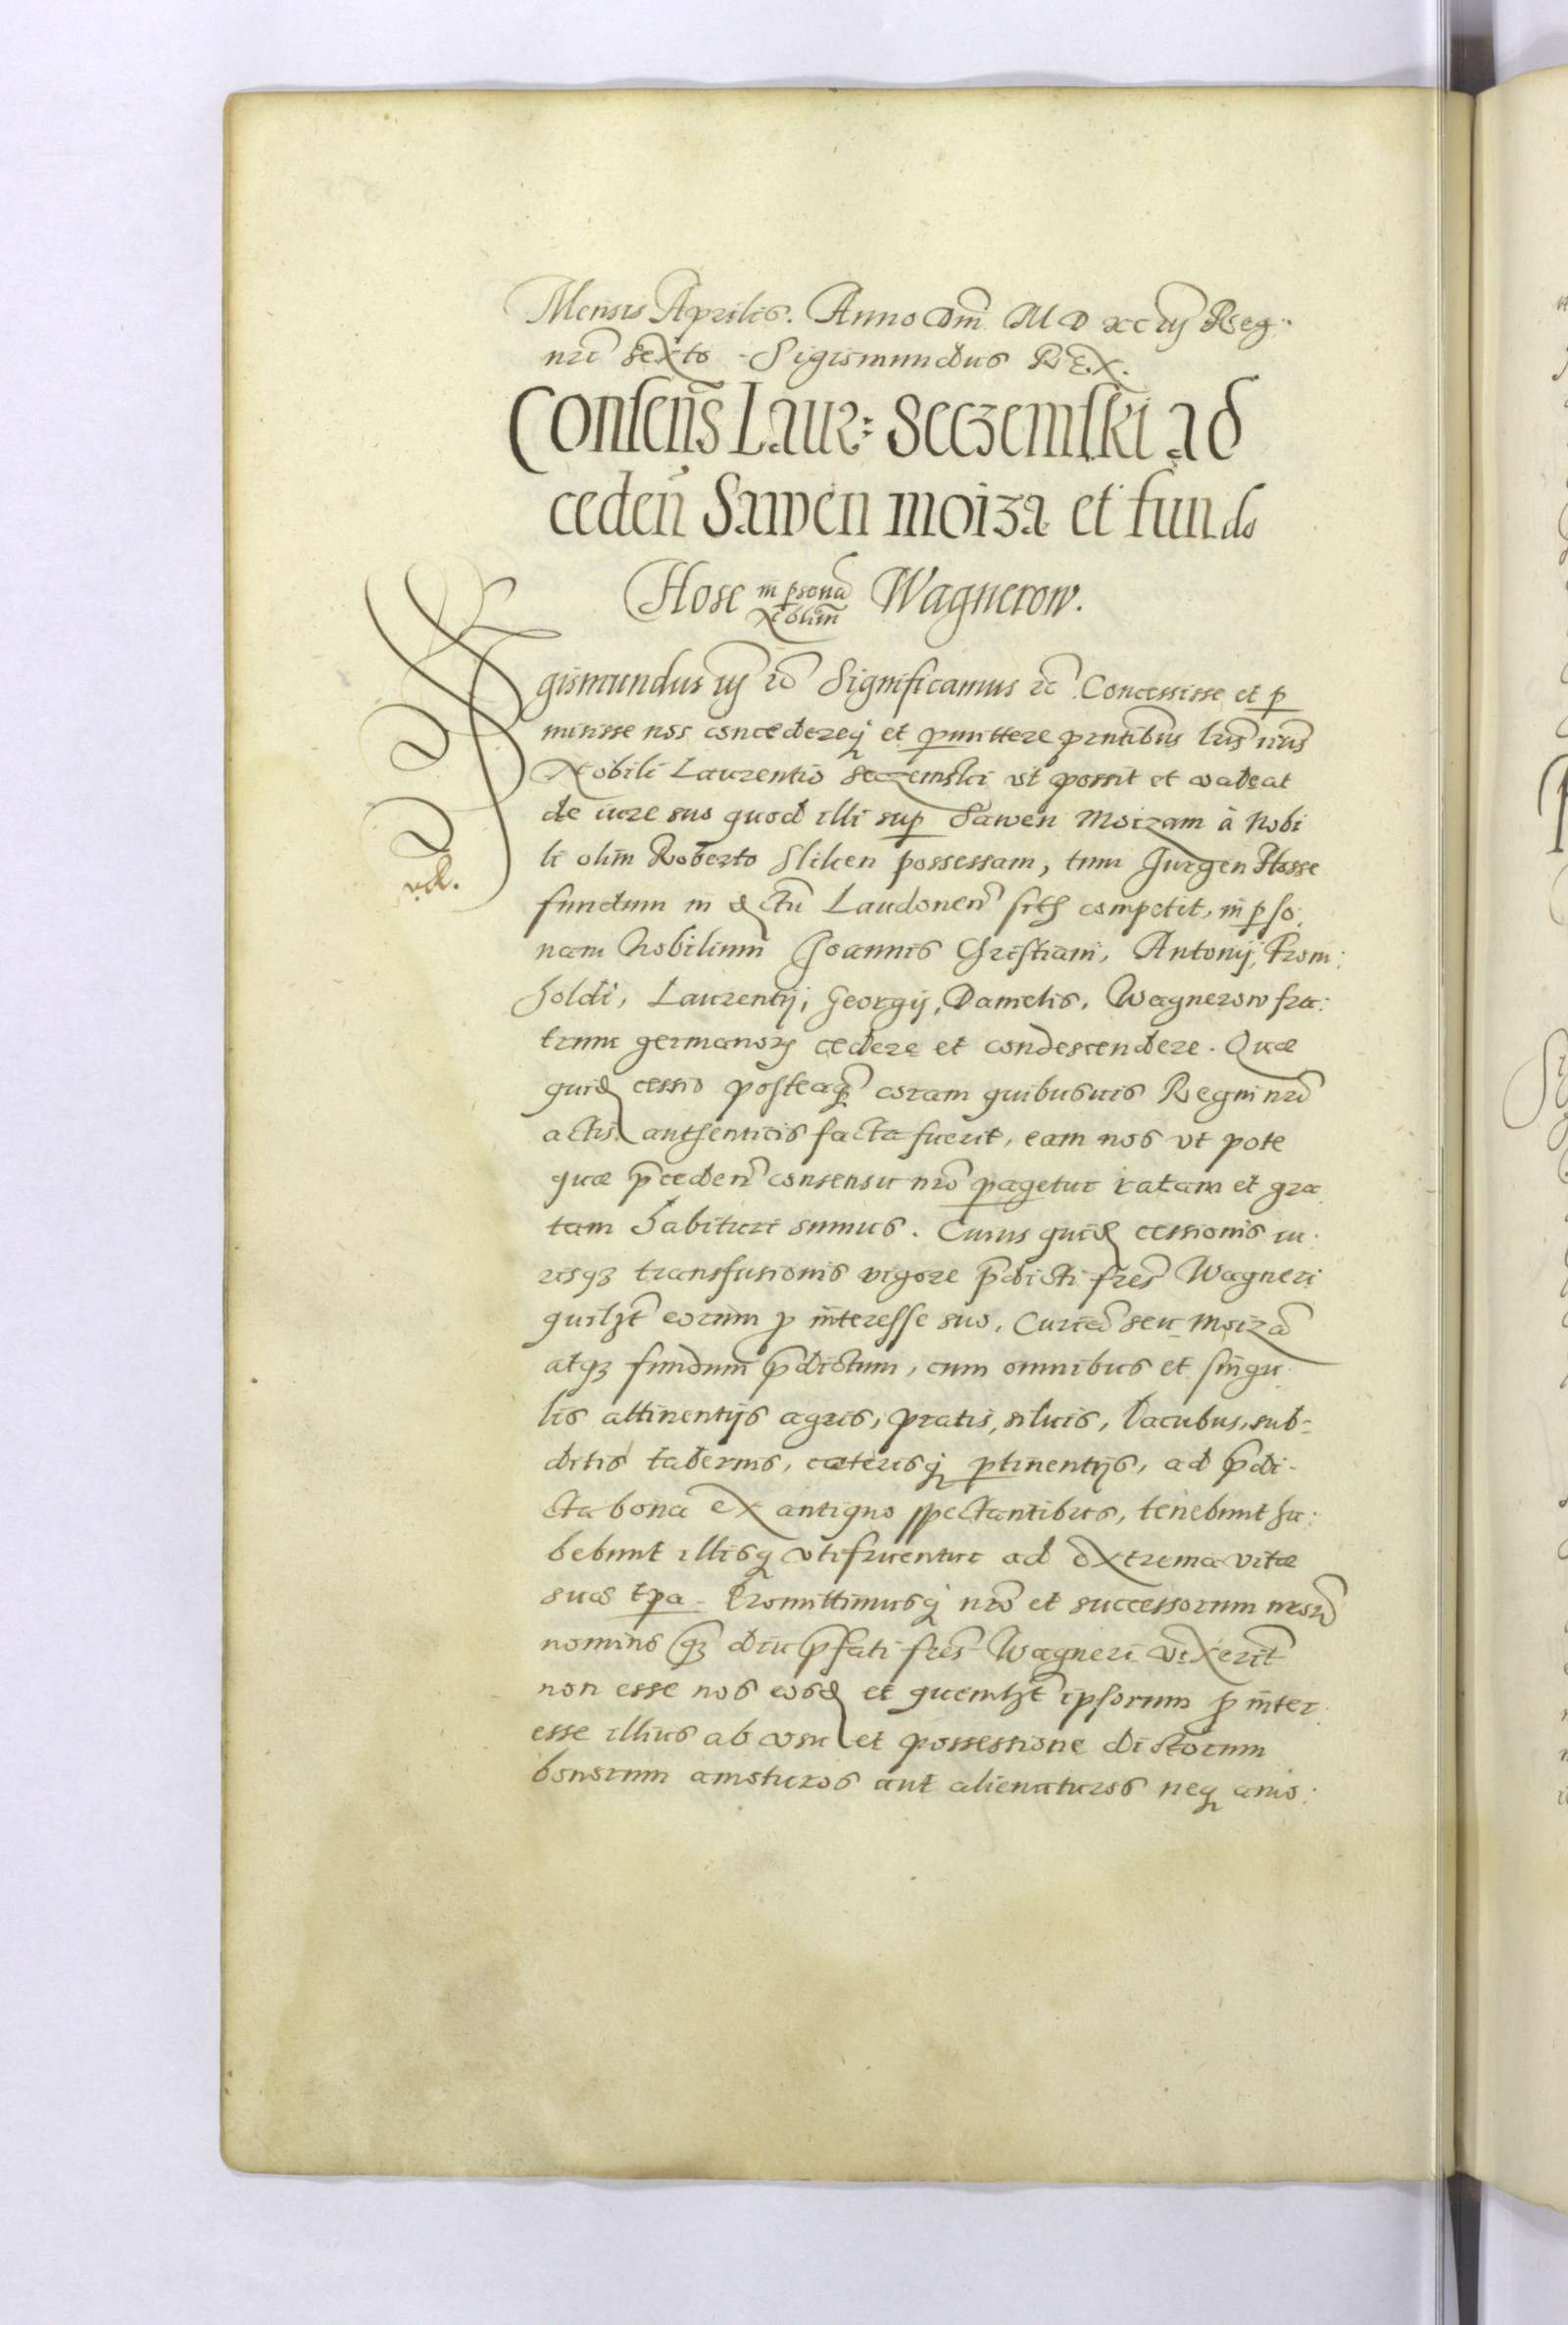 Mensis Aprilis. Anno Dm̃ M D xciij Reg:
nrĩ sexto - Sigismundus REX.
Consens̃ Laur: Seczemski ad
ceden̄ Sawen moiza et fundo
Hose in psonã Nobiliũ Wagnerow.
Sigismundus iij rc̃ Significamus rc̃ Concessisse et p
misisse nos concedereq̃ et pmittere pn̄tibus lr̃is nr̃is
Nobili Laurentio Seczemski vt possit et valeat
de iure suo quod illi sup Sawen Moizam à Nobi
li olim Roberto Sliken possessam, tum Jurgen Hosse
fundum in dctu Laudonen̄ sith competit, in pso:
nam Nobilium Joannis Christiani, Antonij, Krom:
holdi, Laurentij, Georgij, Danielis, Wagnerow fra:
trum germanorz cedere et condescendere. Quæ
quid cessio posteaq̃ coram quibusuis Regni nrĩ
actis authenticis facta fuerit, eam nos vt pote
quæ p̃ceden̄ consensu nrõ pagetur ratam et gra
tam habituri sumus. Cuius quid cessionis iu:
risq3 transfusionis vigore p̃dicti frẽs Wagneri
quilzt eorum p interesse suo, Curiã seu Moizã
atq3 fundum p̃dictum, cum omnibus et singu
lis attinentijs agris, pratis, siluis, lacubus, sub-
ditis tabernis, cæterisq̃ ptinentijs, ad p̃di-
cta bona ex antiquo spectantibus, tenebunt ha:
bebunt illisq̃ vtifruentur ad extrema vitæ
suæ tpa - Promittimusq̃ nrõ et successorum nrorũ
nomins q̃3 diu p̃fati frẽs Wagneri vixerĩt
non esse nos eosd et quemlzt ipsorum p inter:
esse illius ab vsu et possessione dictorum
bonorum amoturos aut alienaturos neq̃ amo: